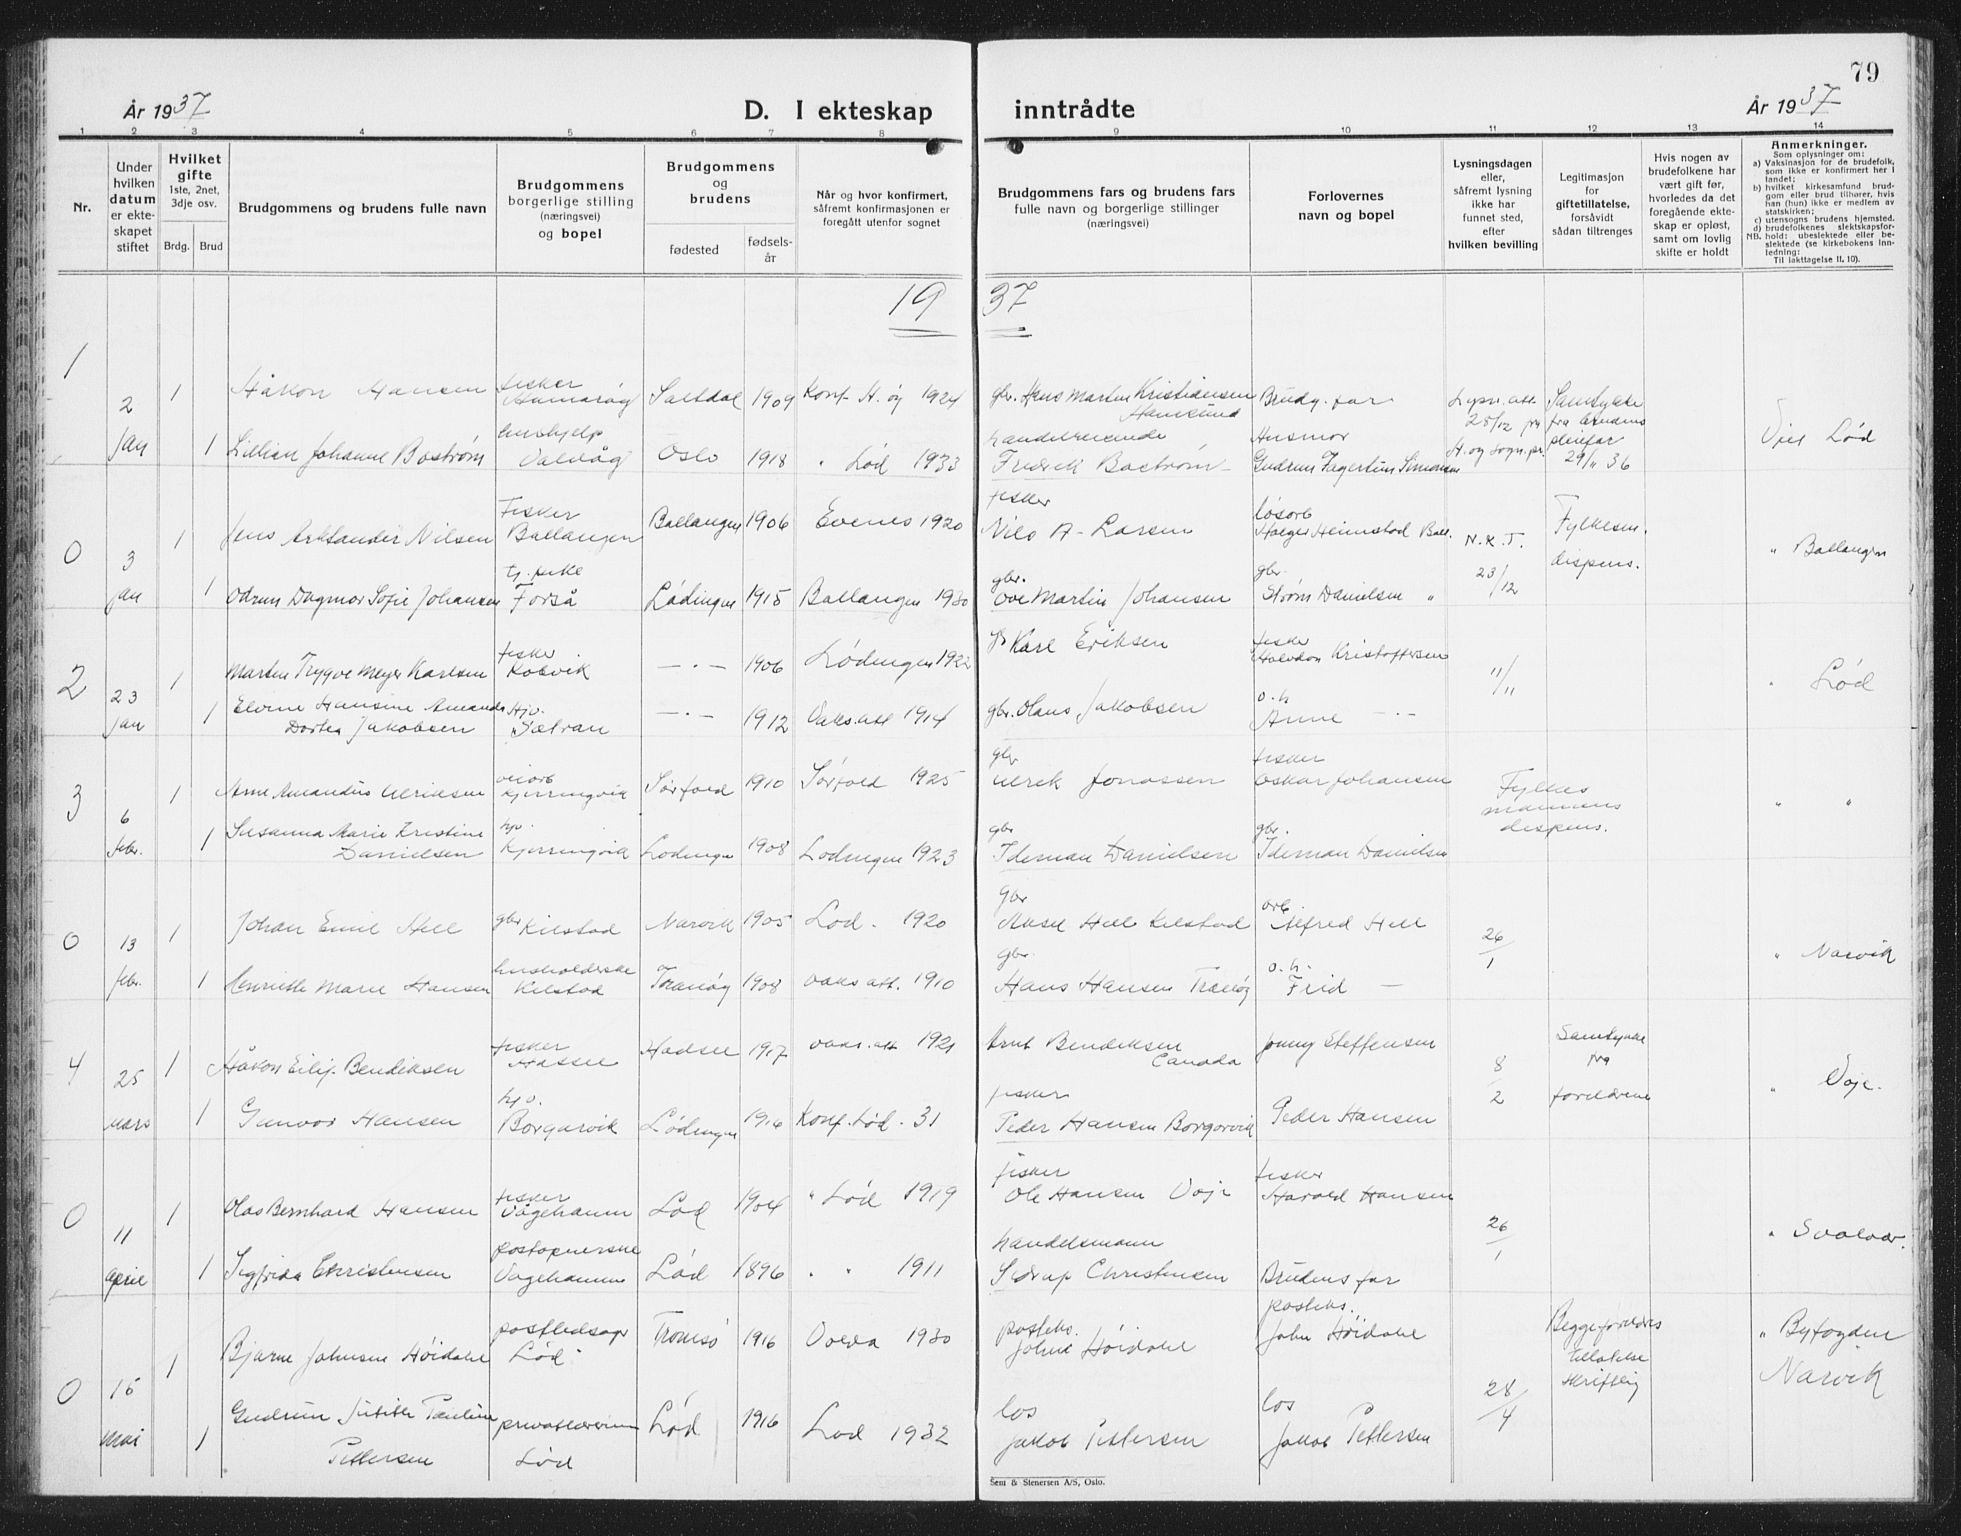 79
År 1937
D. I ekteskap inntrådte
År 1937
1 2 3 4 5 6 7 8 9 10 11 12 13 14
Nr.
Under hvilken datum er ekteskapet stiftet
Hvilket gifte
1ste, 2net, 3dje osv.
Brdg. Brud
Brudgommens og brudens fulle navn
Brudgommens borgerlige stilling (næringsvei) og bopel
Brudgommens og brudens
fødested
fødsels-år
Når og hvor konfirmert, såfremt konfirmasjonen er foregått utenfor sognet
Brudgommens fars og brudens fars fulle navn og borgerlige stillinger (næringsvei)
Forlovernes navn og bopel
Lysningsdagen eller, såfremt lysning ikke har funnet sted, efter hvilken bevilling
Legitimasjon for giftetillatelse, forsåvidt sådan tiltrenges
Hvis nogen av brudefolkene har vært gift før, hvorledes da det foregående ekteskap er opløst, samt om lovlig skifte er holdt
Anmerkninger.
Som oplysninger om:
a) Vaksinasjon for de brudefolk, som ikke er konfirmert her i landet;
b) hvilket kirkesamfund brudgom eller brud tilhører, hvis han (hun) ikke er medlem av statskirken;
c) utensogns brudens hjemsted.
d) brudefolkenes slektskapsforhold: ubeslektede eller beslektede (se kirkebokens innledning:
NB.
Til iakttagelse II, 10).
1937
1 2 jan 1 Håkon Hansen fisker Hamarøy Saltdal 1909 Konf. H.øy 1924 gbr. Hans Martin Kristiansen Brudg. far Lysn. att. 28/12 fra H.øy sogn.pr. Samtykke fra brudens pleiefar 29/11 36
1 Lillian Johanne Boström Oslo 1918 " Lød 1933 handelsreisende Fredrik Boström Husmor Gudrun Fagertun Simonsen Lød
0 3 jan 1 Jens Arktander Nilsen Fisker Ballangen Ballangen 1906 Evenes 1920 fisker Nils A. Larsen Holger Heimstad Ball. N.K.T. 23/12 Fylkesm. dispens. " Ballangen
1 Odrun Dagmar Sofie Johansen Forså Lødingen 1915 Ballangen 1930 gbr. Ove Martin Johansen gbr. Strøm Danielsen "
2 23 jan 1 Martin Trygve Meyer Karlsen fisker Kobvik — " — 1906 Lødingen 1922 Karl Eriksen fisker Halvdan Kristoffersen 11/11 " Lød
1 Elvine Hansine Amanda Dortea Jakobsen Hjv. Sætran — " — 1912 Vaks. att 1914 gbr. Olaus Jakobsen o.h Anne — " —
3 6 febr. 1 Arne Amandus Ulriksen veiarb Kjerringvik Sørfold 1910 Sørfold 1925 gbr Ulrik Jonassen fisker Oskar Johansen Fylkesmannens dispens. " "
1 Susanna Marie Kristine Danielsen hjv. Kjerringvik Lødingen 1908 Lødingen 1923 gbr Ideman Danielsen gbr. Ideman Danielsen
0 13 febr. 1 Johan Emil Hell gbr Kilstad Narvik 1905 Lød. 1920 gbr Aksel Hell Kilstad arb. Alfred Hell 26/1 " Narvik
1 Henriette Marie Hansen husholderske Kilstad Tranøy 1908 vaks att. 1910 gbr. Hans Hansen Tranøy o.h. Frid —
4 25 mars 1 Håkon Eilif Bendiksen fisker Hadsel Hadsel 1917 vaks. att 1921 Arnt Bendiksen Canada Jonny Steffensen 8/2 Samtykke fra foreldrene " Voje.
1 Gunvor Hansen hjv. Borgarvik Lødingen 1916 Konf. Lød. 31 fisker Peder Hansen Borgarvik Peder Hansen
0 11 april 1 Olav Bernhard Hansen fisker Vågehamn Lød 1904 " Lød 1919 fisker Ole Hansen Voje fisker Harald Hansen 26/1 " Svolvær.
1 Sigfrida Christensen postopnerske Vågehamn Lød 1896 " " 1911 handelsmann Sedrup Christensen Brudens far
0 15 mai 1 Bjarne Johnsen Höidahl Lød. Tromsö 1916 Volda 1930 posteks. John Höidahl posteks. John Höidahl 28/4 Begge foreldres tillatelse skriftlig " Byfogden Narvik
1 Gudrun Judith Pauline Pettersen privatlærerinne Lød Lød 1916 Lød 1932 los Jakob Pettersen los Jakob Pettersen
Sem & Stenersen A/S, Oslo.